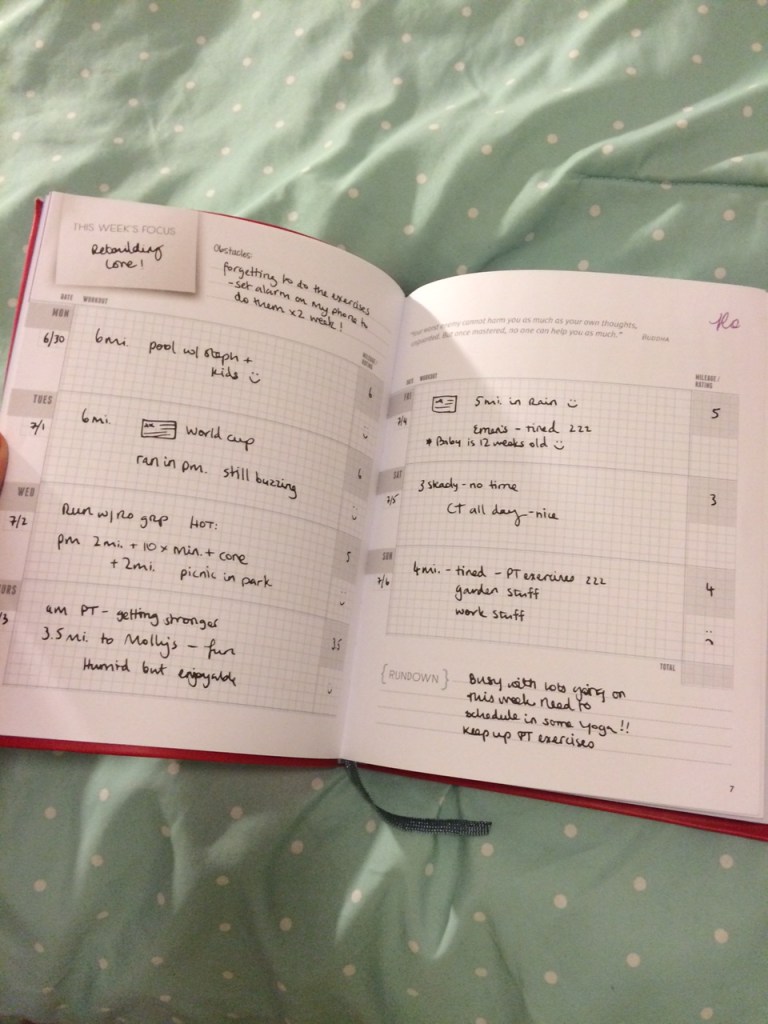 THIS WEEK'S FOCUS
Rebuilding
Core!
Obstacles:
forgetting to do the exercises
- set alarm on my phone to
do them x2 week!
DATE WORKOUT
MILEAGE / RATING
MON
6/30
6mi. pool w/ Steph +
kids
6
TUES
7/1
6mi. World Cup
ran in pm. still buzzing
6
WED
7/2
Run w/ Ro grp HOT!
pm 2mi. + 10 x min. + core
+ 2mi. picnic in park
5
URS
/3
am PT - getting stronger
3.5mi. to Molly's - fun
Humid but enjoyable
3.5
worst enemy cannot harm you as much as your own thoughts,
unguarded. But once mastered, no one can help you as much."
BUDDHA
Ro
DATE WORKOUT
MILEAGE / RATING
FRI
7/4
5mi. in Rain
- tired zzz
* Baby is 12 weeks old
5
SAT
7/5
3 - no time
CT all day - nice
3
SUN
7/6
4mi. - tired - PT exercises zzz
garden stuff
work stuff
4
TOTAL
{RUNDOWN}
Busy with lots going on
this week need to
schedule in some yoga!!
keep up PT exercises
7